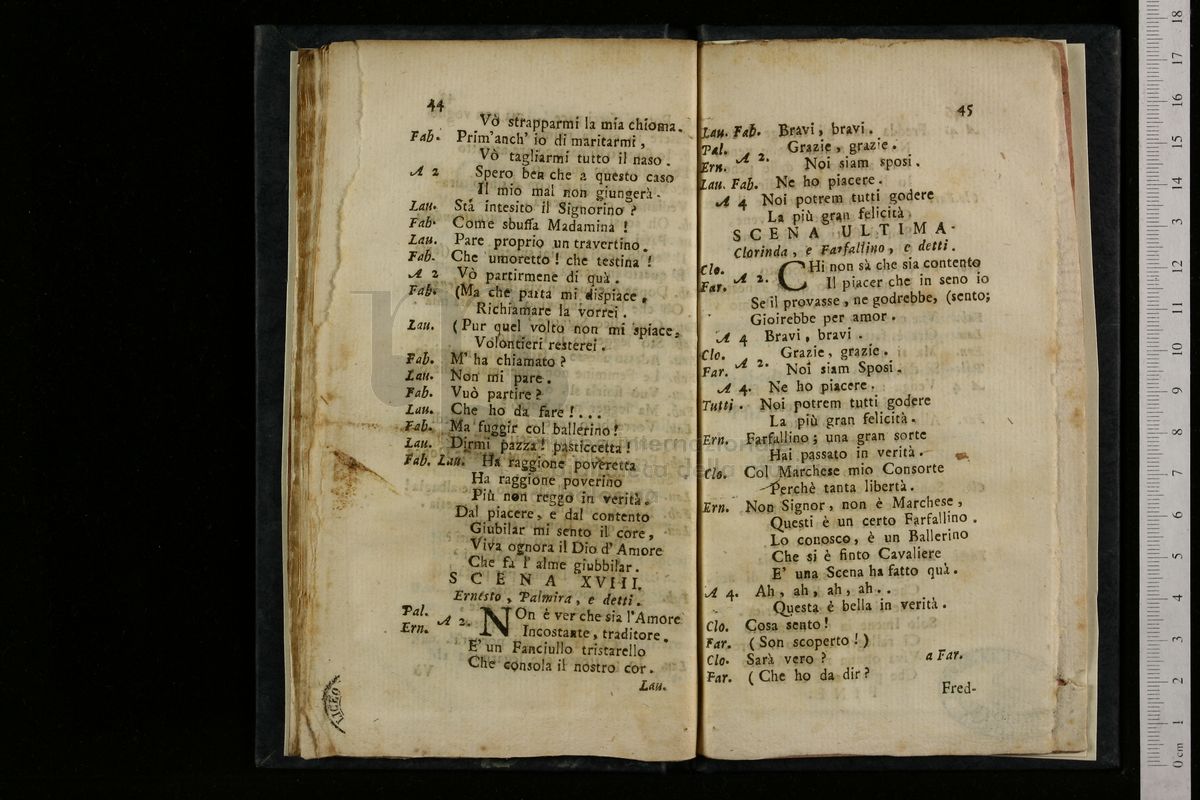 44
Vò strapparmi la mia chioma.
Fab. Prim'anch' io di maritarmi,
Vò tagliarmi tutto il naso.
A 2 Spero ben che a questo caso
Il mio mal non giungerà.
Lau. Stá intesito il Signorino?
Fab. Come sbuffa Madamina!
Lau. Pare proprio un travertino.
Fab. Che umoretto! che testina!
A 2 Vò partirmene di quà.
Fab. (Ma che parta mi dispiace,
Richiamare la vorrei.
Lau. (Pur quel volto non mi spiace,
Volontieri resterei.
Fab. M' ha chiamato?
Lau. Non mi pare.
Fab. Vuò partire?
Lau. Che ho da fare!...
Fab. Ma fuggir col ballerino!
Lau. Dirmi pazza! pasticcetta!
Fab. Lau. Ha raggione poveretta
Ha raggione poverino
Più non reggo in verità.
Dal piacere, e dal contento
Giubilar mi sento il core,
Viva ognora il Dio d' Amore
Che fa l' alme giubbilar.
SCENA XVIII.
Ernesto, Palmira, e detti.
Pal.
Ern. A 2. NOn è ver che sia l'Amore
Incostante, traditore.
E' un Fanciullo tristarello
Che consola il nostro cor.
Lau.
LICEO
45
Lau. Fab. Bravi, bravi.
Pal. Grazie, grazie.
Ern. A 2. Noi siam sposi.
Lau. Fab. Ne ho piacere.
A 4 Noi potrem tutti godere
La più gran felicità.
SCENA ULTIMA.
Clorinda, e Farfallino, e detti.
Clo.
Far. A 2. CHi non sà che sia contento
Il piacer che in seno io
Se il provasse, ne godrebbe, (sento;
Gioirebbe per amor.
A 4 Bravi, bravi.
Clo. Grazie, grazie.
Far. A 2. Noi siam Sposi.
A 4. Ne ho piacere.
Tutti. Noi potrem tutti godere
La più gran felicità.
Ern. Farfallino; una gran sorte
Hai passato in verità.
Clo. Col Marchese mio Consorte
Perchè tanta libertà.
Ern. Non Signor, non è Marchese,
Questi è un certo Farfallino.
Lo conosco, è un Ballerino
Che si è finto Cavaliere
E' una Scena ha fatto quà.
A 4. Ah, ah, ah, ah..
Questa è bella in verità.
Clo. Cosa sento!
Far. (Son scoperto!)
Clo. Sarà vero? a Far.
Far. (Che ho da dir?
Fred-
0 cm 1 2 3 4 5 6 7 8 9 10 11 12 13 14 15 16 17 18